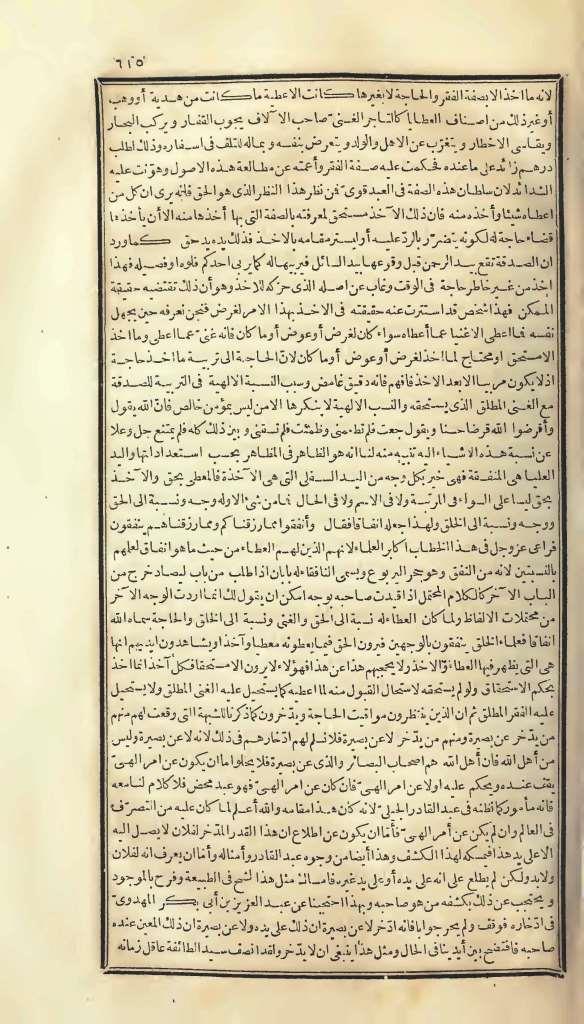 ٦١٥
لانه ما اخذ الا بصفة الفقر والحاجة لا بغيرها كانت الاعطية ما كانت من هدية أو وهب
أو غير ذلك من اصناف العطايا كالتاجر الغنى صاحب الآلاف يجوب القفار ويركب البحار
ويقاسى الاخطار ويتغرب عن الاهل والولد ويتعرض بنفسه وبماله للتلف فى اسفاره وذلك لطلب
درهم زائد على ما عنده فحكمت عليه صفة الفقر وأعمته عن مطالعة هذه الاصول وهونت عليه
الشدائد لان سلطان هذه الصفة فى العبد قوى فمن نظر هذا النظر الذى هو الحق فانه يرى ان كل من
اعطاه شيئا وأخذه منه فان ذلك الآخذ مستحق لمعرفته بالصفة التى بها أخذها منه الا أن يأخذها
قضاء حاجة له لكونه يتضرر بالرد عليه أو ليستر مقامه بالاخذ فذلك يده يد حق كما ورد
ان الصدقة تقع بيد الرحمن قبل وقوعها بيد السائل فيربيها له كما يربى احدكم فلوه أو فصيله فهذا
اخذ من غير خاطر حاجة فى الوقت وغاب عن اصله الذى حركه للاخذ وهو أن ذلك تقتضيه حقيقة
الممكن فهذا شخص قد استترت عنه حقيقته فى الاخذ بهذا الامر لغرض فنحن نعرفه حين يجهل
نفسه فما اعطى الاغنياء عما أعطاه سواء كان لغرض أو عوض أو ما كان فانه غنى عما اعطى وما اخذ
الا مستحق او محتاج لما اخذ لغرض أو عوض أو ما كان لان الحاجة الى تربية ما اخذ حاجة
اذ لا يكون مربيا الا بعد الاخذ فافهم فانه دقيق غامض وسبب النسبة الالهية فى التربية للصدقة
مع الغنى المطلق الذى يستحقه والنسب الالهية لا ينكرها الا من ليس بمؤمن خالص فان الله يقول
وأقرضوا الله قرضا حسنا ويقول جعت فلم تطعمنى وظمئت فلم تسقنى وبين ذلك كله فلم يمتنع جل وعلا
عن نسبة هذه الاشياء اليه تنبيه منه لنا انه هو الظاهر فى المظاهر بحسب استعداداتها واليد
العليا هى المنفقة فهى خير بكل وجه من اليد السفلى التى هى الآخذة فالمعطى بحق والآخذ
بحق ليسا على السواء فى المرتبة ولا فى الاسم ولا فى الحال فما من شئ الا وله وجه ونسبة الى الحق
ووجه ونسبة الى الخلق ولهذا جعله انفاقا فقال وأنفقوا مما رزقناكم ومما رزقناهم ينفقون
فراعى عز وجل فى هذا الخطاب اكابر العلماء لانهم الذين لهم العطاء من حيث ما هو انفاق لعلمهم
بالنسبتين لانه من النفق وهو جحر اليربوع ويسمى النافقاء له بابان اذا طلب من باب ليصاد خرج من
الباب الآخر كالكلام المحتمل اذا قيدت صاحبه بوجه امكن ان يقول لك انما اردت الوجه الآخر
من محتملات الالفاظ ولما كان العطاء له نسبة الى الحق والغنى ونسبة الى الخلق والحاجة سماه الله
انفاقا فعلماء الخلق ينفقون بالوجهين فيرون الحق فيما يعطونه معطيا وآخذا ويشاهدون ايديهم انها
هى التى يظهر فيها العطاء والاخذ ولا يحجبهم هذا عن هذا فهؤلاء لا يرون الا مستحقا فكل آخذ انما اخذ
بحكم الاستحقاق ولو لم يستحقه لاستحال القبول منه لما اعطيه كما يستحيل عليه الغنى المطلق ولا يستحيل
عليه الفقر المطلق ثم ان الذين ينتظرون مواقيت الحاجة ويدخرون كما ذكرنا للشبهة التى وقعت لهم منهم
من يدخر عن بصيرة ومنهم من يدخر لا عن بصيرة فلا نسلم لهم ادخارهم فى ذلك لانه لا عن بصيرة وليس
من أهل الله فان أهل الله هم اصحاب البصائر والذى عن بصيرة فلا يخلو اما ان يكون عن امر الهى
يقف عنده ويحكم عليه اولا عن امر الهى فان كان عن امر الهى فهو عبد محض فلا كلام لنا معه
فانه مأمور كما نظنه فى عبد القادر الجيلى لانه كان هذا مقامه والله أعلم لما كان عليه من التصرف
فى العالم وان لم يكن عن أمر الهى فأما ان يكون عن اطلاع ان هذا القدر المدخر لفلان لا يصل اليه
الا على يد هذا فيمسكه لهذا الكشف وهذا أيضا من وجوه عبد القادر وأمثاله وأما ان يعرف انه لفلان
ولا بد ولكن لم يطلع على انه على يده أو على يد غيره فامساك مثل هذا لشح فى الطبيعة وفرح بالموجود
ويحتجب عن ذلك بكشفه من هو صاحبه وبهذا احتججنا عن عبد العزيز بن أبى بكر المهدوى
فى ادخاره فوقف ولم يحر جوابا فانه ادخر لا عن بصيرة ان ذلك على يده ولا عن بصيرة ان ذلك المعين عنده
صاحبه فافتضح بين أيدينا فى الحال ومثل هذا ينبغى ان لا يدخر ولقد انصف سيد الطائفة عاقل زمانه